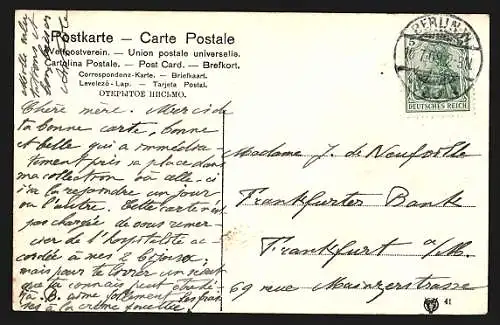 Postkarte — Carte Postale
Weltpostverein. — Union postale universelle.
Cartolina Postale. — Post Card. — Brefkort.
Correspondenz-Karte. — Briefkaart.
Levelező-Lap. — Tarjeta Postal.
ОТКРЫТОЕ ПИСЬМО.
BERLIN
DEUTSCHES REICH
Chère mère. Merci de
ta bonne carte, bonne
et belle qui a immédia-
tement pris sa place dans
ma collection où elle
la rejoindre un jour
ou l'autre. Cette carte n'est
pas chargée de vous remer-
cier de l'hospitalité ac-
cordée à mes 2
mais pour te
tu connais peut
à B. aime follement les frai-
ses à la crème fouettée.
Madame J. de Neufville
Frankfurter Bank
Frankfurt a/M.
69 rue Mainzerstrasse
41